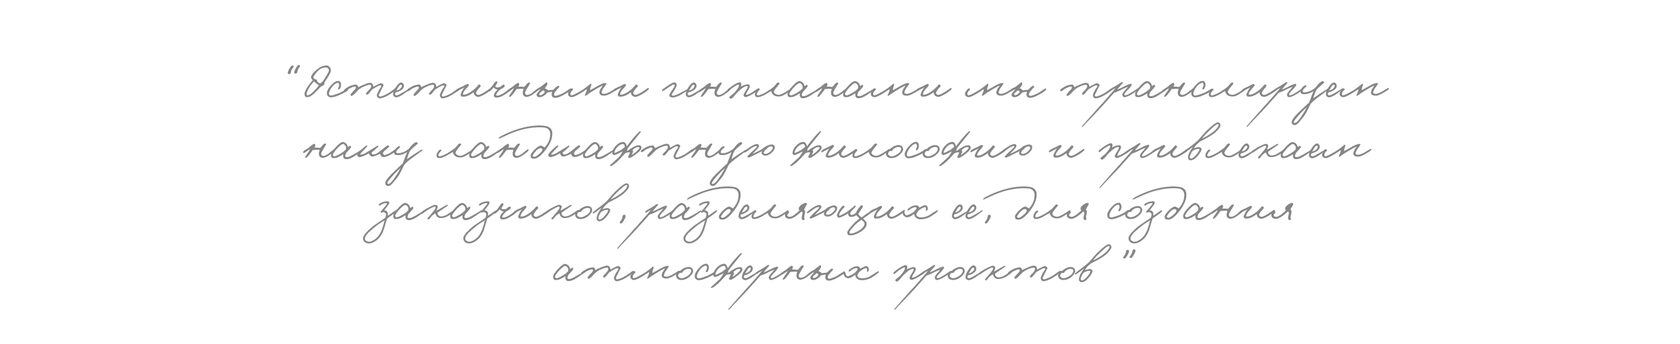 “Эстетичными генпланами мы транслируем
нашу ландшафтную философию и привлекаем
заказчиков, разделяющих ее, для создания
атмосферных проектов”